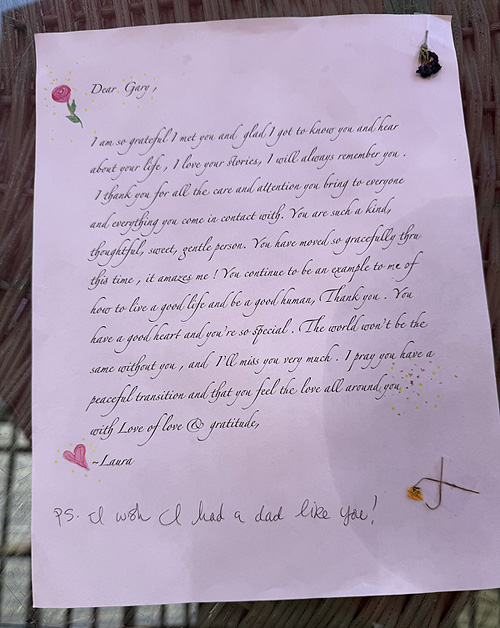 Dear Gary ,
I am so grateful I met you and glad I got to know you and hear
about your life , I love your stories, I will always remember you .
I thank you for all the care and attention you bring to everyone
and everything you come in contact with. You are such a kind,
thoughtful, sweet, gentle person. You have moved so gracefully thru
this time , it amazes me ! You continue to be an example to me of
how to live a good life and be a good human, Thank you . You
have a good heart and you're so special . The world won't be the
same without you , and I'll miss you very much . I pray you have a
peaceful transition and that you feel the love all around you .
with Love of love @ gratitude,
~Laura
PS. I wish I had a dad like you!